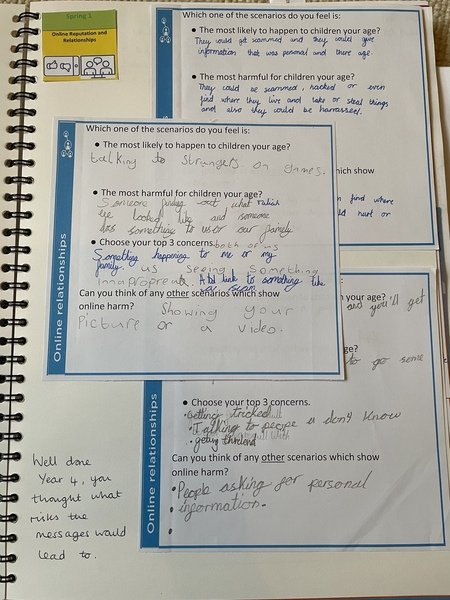 Spring 1
Online Reputation and
Relationships
Which one of the scenarios do you feel is:
The most likely to happen to children your age?
They could get scammed and they could give
information that was personal and there age.
The most harmful for children your age?
They could be scammed, hacked or even
find where they live and take or steal things
and also they could be harrassed.
which show
find where
hurt or
Online relationships
Which one of the scenarios do you feel is:
The most likely to happen to children your age?
talking to strangers on games.
The most harmful for children your age?
Someone finding out what
we looked like and someone
does something to us or our family
Choose your top 3 concerns. both of us
Something happening to me or my
family. us seeing something
innapropreate. A bad link to something like
Can you think of any other scenarios which show
online harm? Showing your
Picture or a video.
Online relationships
your age?
and you'll get
ge?
to go some
Choose your top 3 concerns.
Getting tricked
Talking to people u don't know
getting
Can you think of any other scenarios which show
online harm?
People asking for personal
information.
Well done
Year 4, you
thought what
risks the
messages would
lead to.